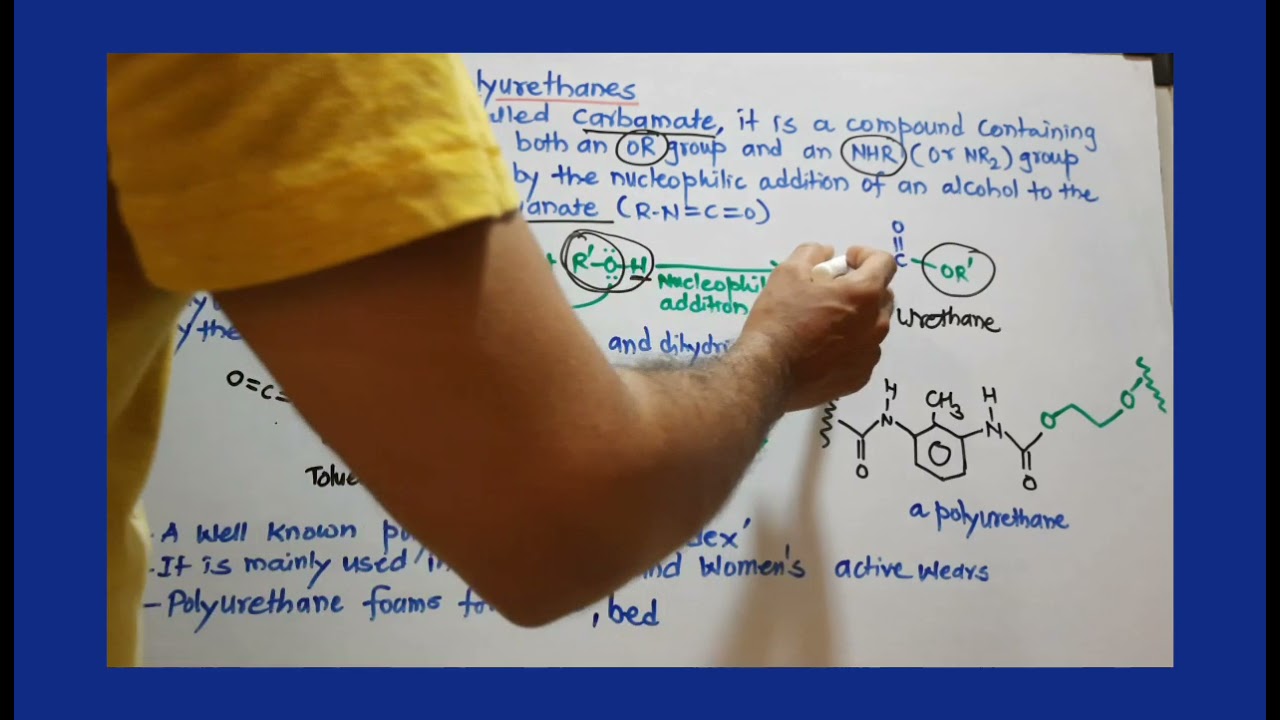 lyurethanes
lled Carbamate, it is a compound containing
both an OR group and an NHR (or NR2) group
by the nucleophilic addition of an alcohol to the
anate (R-N=C=O)
O
R'-O-H
C-OR'
Nucleophil
addition
urethane
y the
and dihydri
O=C=
H
CH3
H
N
N
O
O
O
O
Tolue
a polyurethane
. A well known po
dex'
. It is mainly used in
and Women's active wears
- Polyurethane foams fo
, bed